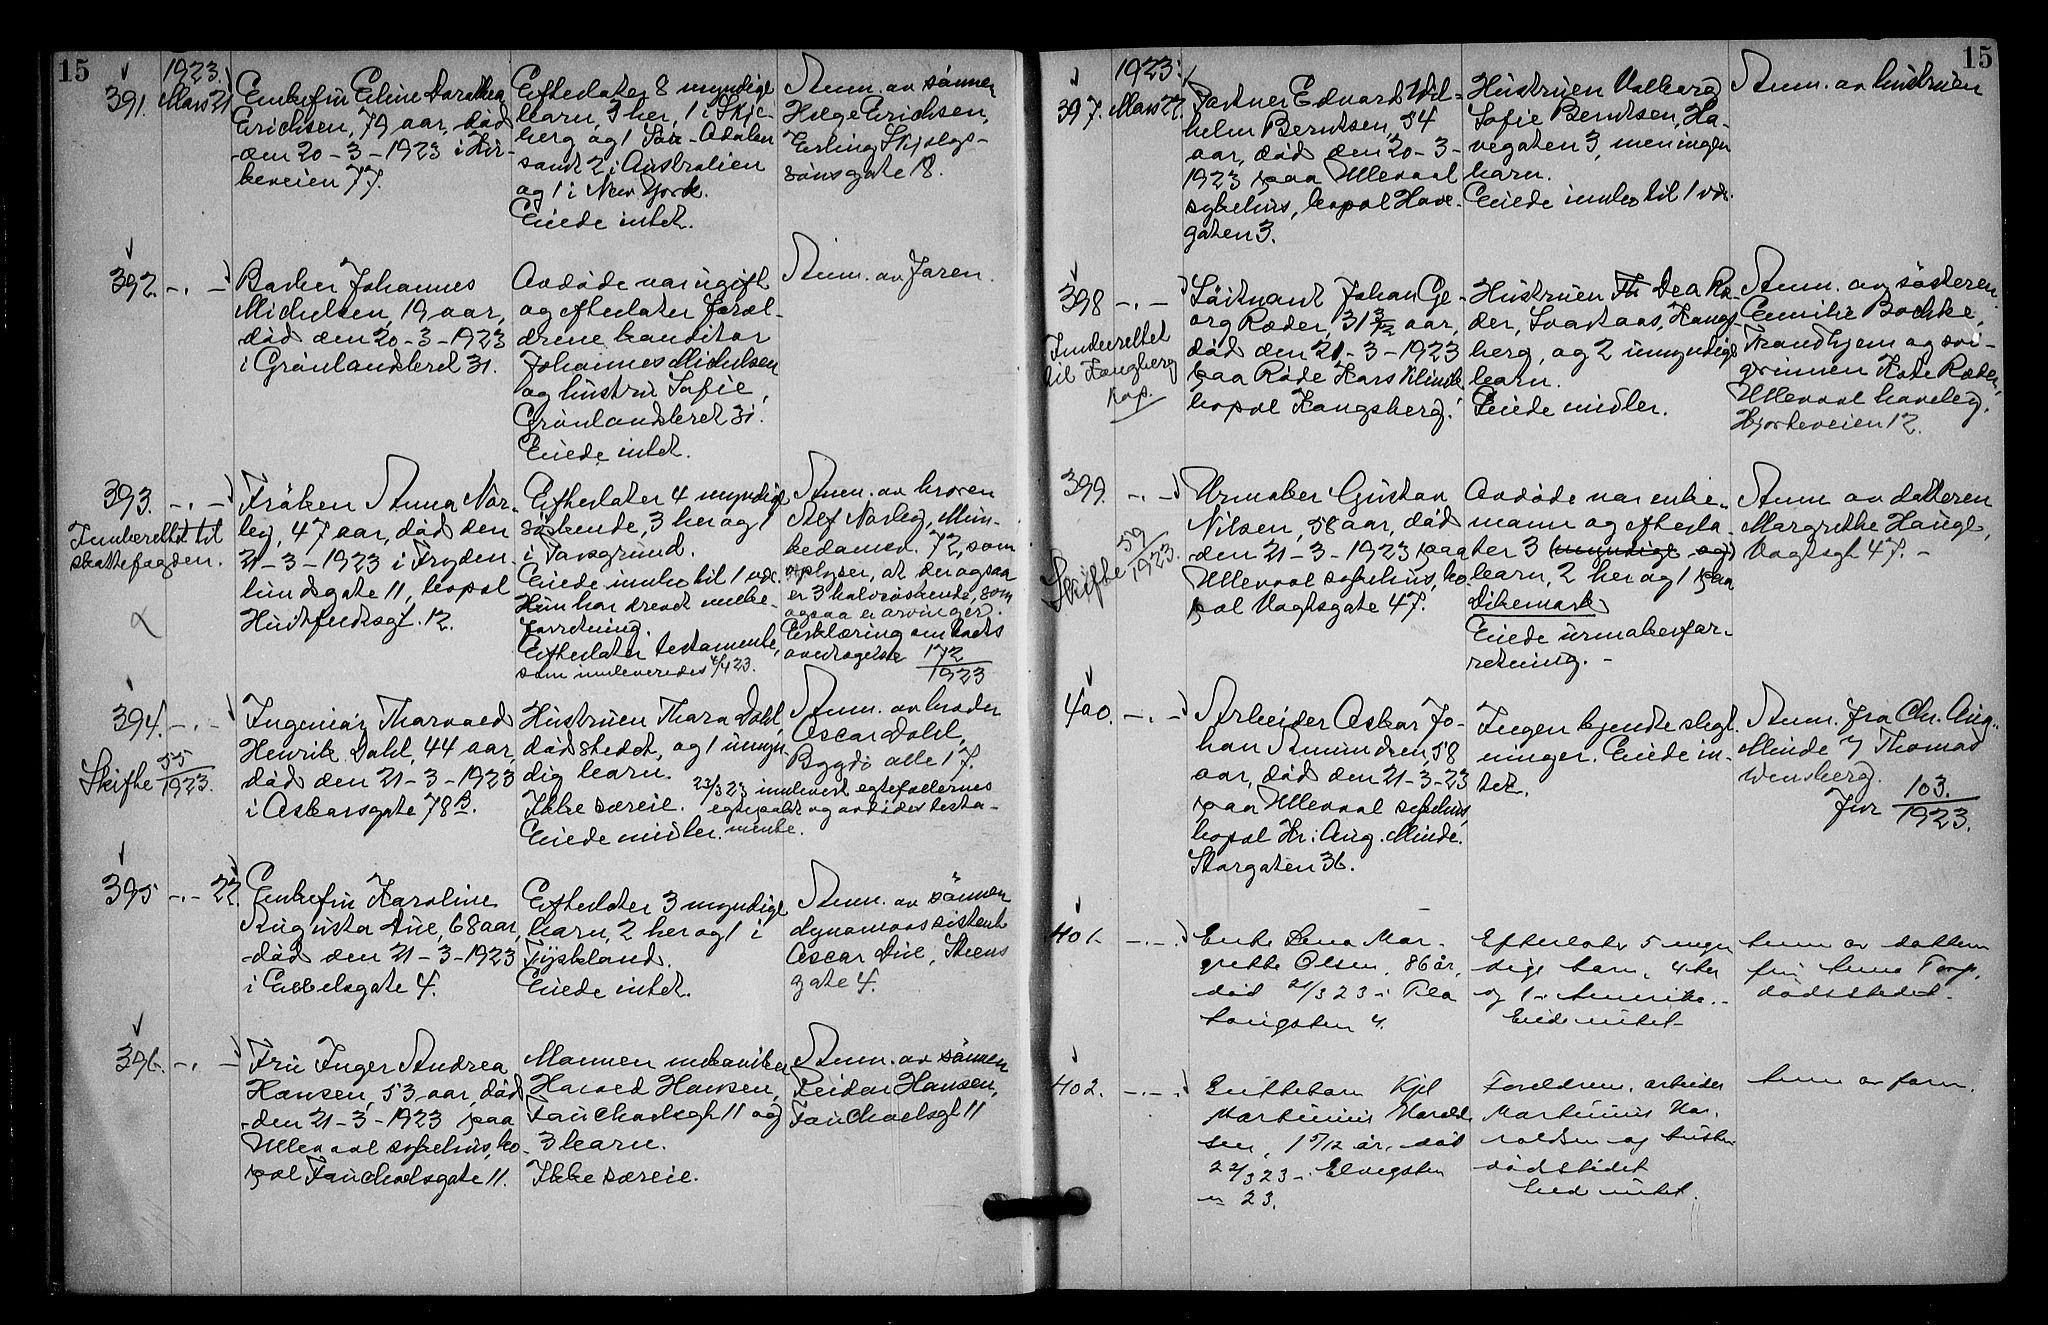 15
1923.
391. Mars 21
Enkefru Eline Dorothea
Erichsen, 79 aar, död
den 20-3-1923 i Kir-
keveien 77.
Efterlater 8 myndige
barn, 3 her, 1 i Skje-
berg og 1 Sör-Odalen
samt 2 i Australien
og 1 i New York.
Eiede intet.
Anm. av sönnen
Helge Erichsen,
Erling Skjalgs-
sönsgate 18.
392. -.-
Johannes
Michelsen, 19 aar,
död den 20-3-1923
i Grönlandsleret 31.
Avdöde var ugift
og efterlater foræl-
drene konditor
Johannes Michelsen
og hustru Sofie,
Grönlandsleret 31.
Eiede intet.
Anm. av faren.
393. -.-
Inberettet til
skattefogden.
Fröken Anna Nor-
ley, 47 aar, död den
21-3-1923 i Fryden-
lundsgate 11, bopæl
Huitfeldtsgt. 12.
Efterlater 4 myndige
söskende, 3 her og 1
i Porsgrund.
Eiede indbo til 1 vær.
Hun har drevet
forretning.
Efterlater testamente,
som innleveredes 4/4 23.
Anm. av broren
Alf Norley, Mun-
kedamsv. 72, som
oplyser, at der ogsaa
er 3 halvsöskende, som
ogsaa er arvinger.
Erklæring om boets
overtagelse 172/1923
394. -.-
Skifte 55/1923.
Ingeniör Thorvald
Henrik Dahl, 44 aar,
död den 21-3-1923
i Oskarsgate 78 B.
Hustruen Thora Dahl,
dödsstedet, og 1 umyn-
dig barn.
Ikke særeie.
Eiede midler.
Anm. av broder
Oscar Dahl,
Bygdö alle 17.
23/3 23 innlevert egtefællernes
egtepakt og avdödes testa-
mente.
395 -.- 22.
Enkefru Karoline
Augusta Due, 68 aar,
död den 21-3-1923
i Eckelsgate 4.
Efterlater 3 myndige
barn, 2 her og 1 i
Tyskland.
Eiede intet.
Anm. av sönnen
dynamoassistent
Oscar Due, Steens
gate 4.
396. -.-
Fru Inger Andrea
Hansen, 53 aar, död
den 21-3-1923 paa
Ullevaal sykehus, bo-
pæl Fauchaldsgate 11.
Mannen mekaniker
Harald Hansen,
Fauchaldsgt 11 og
3 barn.
Ikke særeie.
Anm. av sönnen
Reidar Hansen,
Fauchaldsgt 11
15
1923.
397. Mars 22.
Portner Edvard Wil-
helm Berntsen, 54
aar, död den 20-3-
1923 paa Ullevaal
sykehus, bopæl Have-
gaten 3.
Hustruen Valborg
Sofie Berntsen, Ha-
vegaten 3, men ingen
barn.
Eiede innbo til 1 vær.
Anm. av hustruen
398 -.-
Innberettet
til Kongsberg
Löitnant Johan Ge-
org Ræder, 31 3/12 aar,
död den 21-3-1923
paa Röde Kors Klinik
bopæl Kongsberg.
Hustruen Th Dea Ræ-
der, Svartaas, Kongs-
berg, og 2 umyndige
barn.
Eiede midler.
Anm. av sösteren
Emilie Bachke,
Trondhjem og svi-
gerinnen Kate Ræder,
Ullevaal haveby,
Hjorteveien 12.
399. -.-
Skifte 59/1923.
Urmaker Gustav
Nilsen, 58 aar, död
den 21-3-1923 paa
Ullevaal sykehus, bo-
pæl Vogtsgate 47.
Avdöde var enke-
mann og efterla-
ter 3 (myndige og)
barn, 2 her og 1 paa
Dikemark
Eiede urmakerfor-
retning. -
Anm av datteren
Margrethe Hauge,
Vogtsgt 47. -
400. -.-
Arbeider Oskar Jo-
han Amundsen, 58
aar, död den 21-3-23
paa Ullevaal sykehus
bopæl Hr. Aug. Minde.
Storgaten 36.
Ingen kjendte slegt-
ninger. Eiede in-
tet.
Anm. fra Chr. Aug.
Minde v/ Thomas
Wensberg.
Jnr 103./1923.
401. -.-
Enke Lena Mar-
grethe Olsen, 86 år,
död 21/3 23 i Pila
4.
Efterlater 5 myn-
dige barn, 4 her
og 1 i Amerika. -
Eiede intet -
Anm av datteren
fru Anna Torp,
dödsstedet.
402. -.-
Guttebarn Kjel
Martinius Harald-
sen, 1 5/12 år, död
22/3 23 i Elvegaten
n 23.
Foreldrene, arbeider
Martinius Har-
raldsen og hustru
dödsstedet
Eied intet.
Anm av faren.